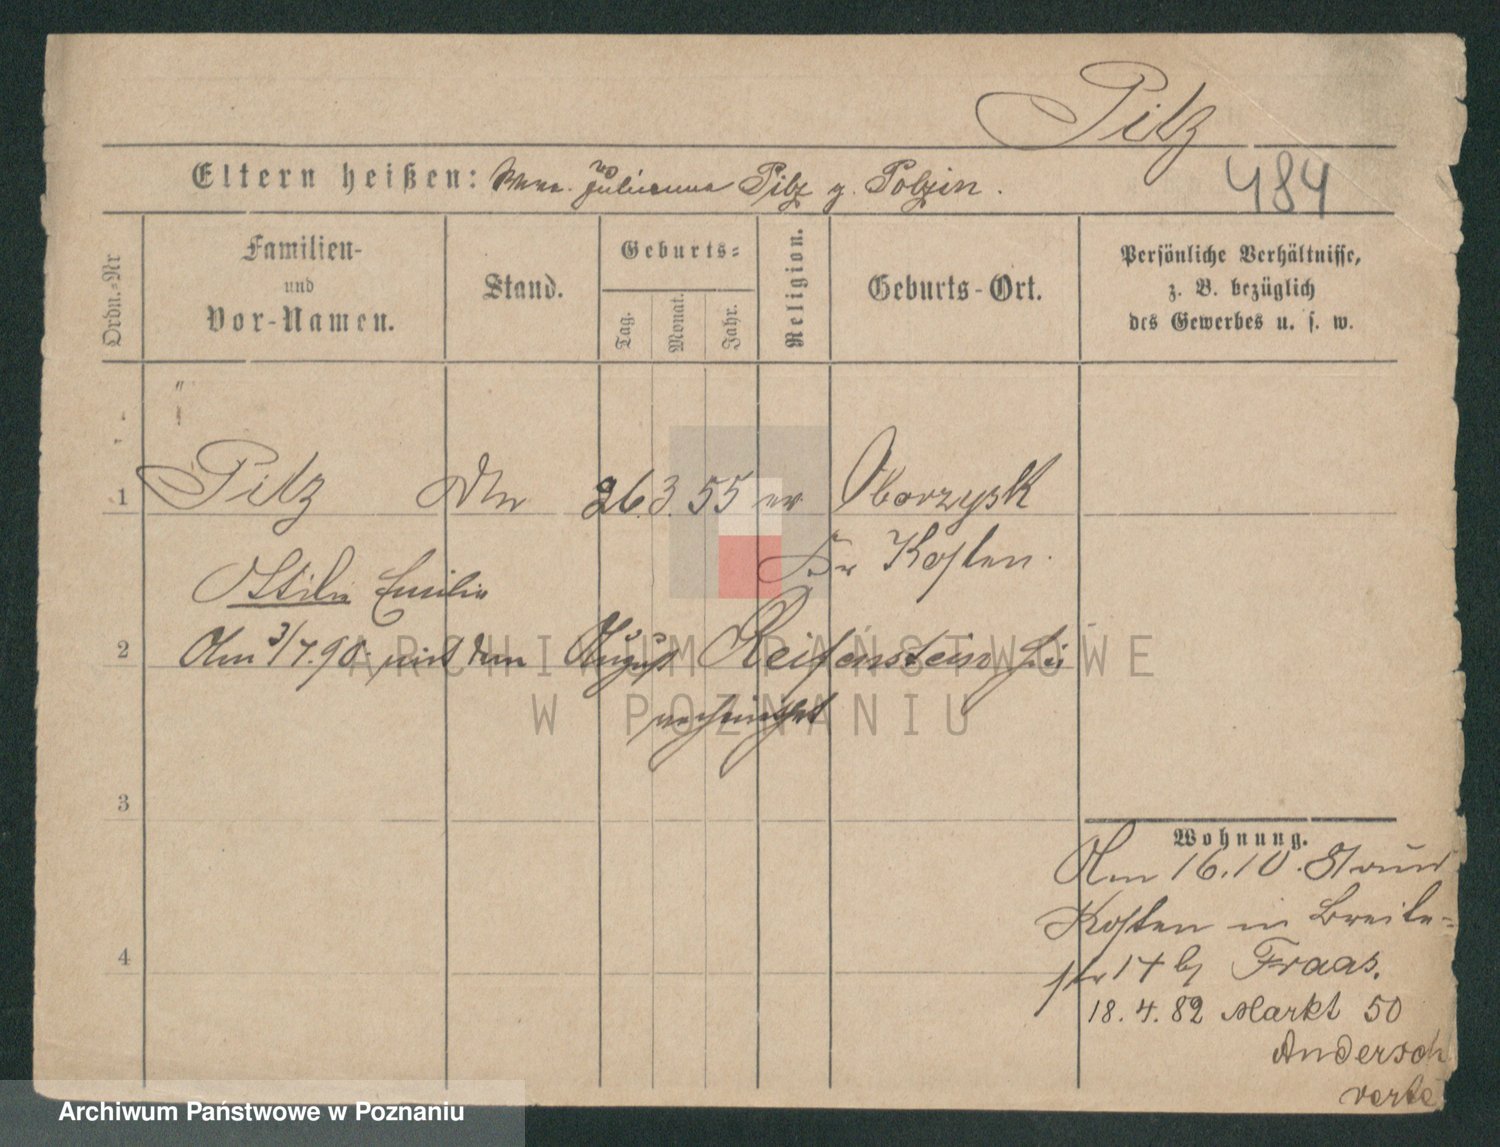 Pilz
Eltern heißen: Julianna Pilz g. Polzin.
484
Ordn.=Nr
Familien-
und
Vor-Namen.
Stand.
Geburts=
Tag.
Monat.
Jahr.
Religion.
Geburts-Ort.
Persönliche Verhältnisse,
z. B. bezüglich
des Gewerbes u. s. w.
1 Pilz 26. 3. 55 ev Oborzysk
Kr Kosten.
Ottilie Emilie
2 Am 3/7.90. mit dem August Reifenstein hier
verheirathet
3
Wohnung.
Am 16.10.
Kosten in Breite=
4
str 14 bei Fraas.
18. 4. 82 Markt 50
Andersch
verte
ARCHIWUM PAŃSTWOWE
W POZNANIU
Archiwum Państwowe w Poznaniu